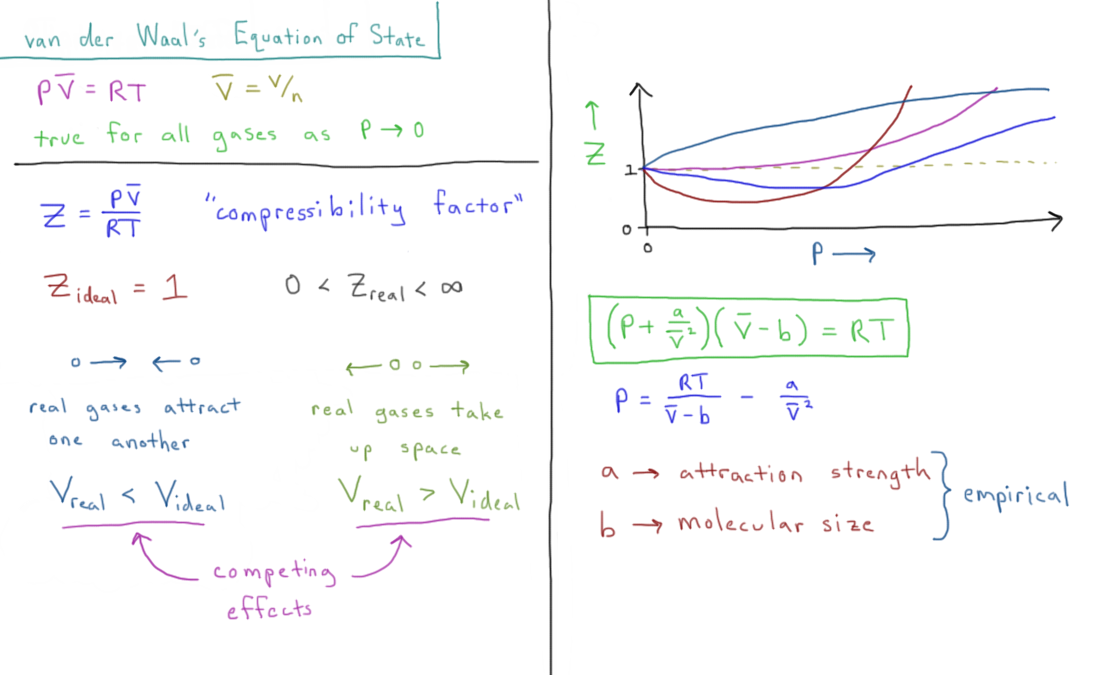 van der Waal's Equation of State
PV̅ = RT V̅ = V/n
true for all gases as P → 0
Z = PV̅/RT "compressibility factor"
Z ideal = 1 0 < Z real < ∞
real gases attract
one another
V real < V ideal
real gases take
up space
V real > V ideal
competing
effects
↑
Z
1
0
0
P →
(P + a/V̅²)(V̅ - b) = RT
P = RT/(V̅ - b) - a/V̅²
a → attraction strength
b → molecular size
empirical